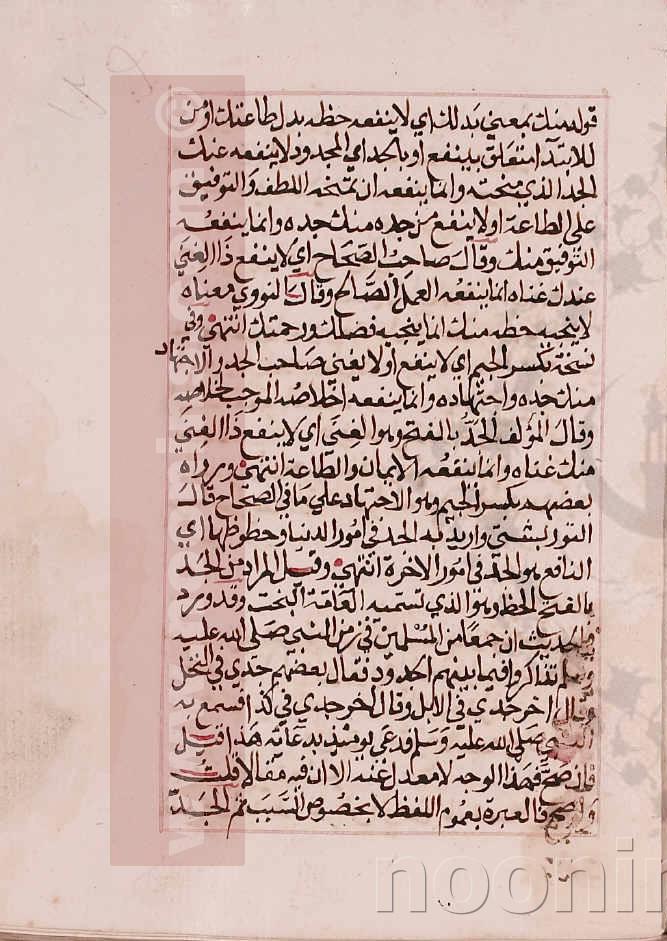 قوله منك بمعني بدلك اي لا ينفعه حظه بدل طاعتك او من
للابتدآ متعلق بينفع او بالجد اي المجدود لا ينفعه عنك
الجد الذي منحته وانما ينفعه ان تمنحه اللطف والتوفيق
علي الطاعة او لا ينفع من جده منك جده وانما ينفعه
التوفيق منك وقال صاحب الصحاح اي لا ينفع ذا الغني
عندك غناه انما ينفعه العمل الصالح وقال النووي معناه
لا ينجيه حظه منك انما ينجيه فضلك ورحمتك انتهي وفي
نسخة بكسر الجيم اي لا ينفع او لا يغني صاحب الجد والاجتهاد
منك جده واجتهاده وانما ينفعه اخلاصه الموجب لخلاصه
وقال المؤلف الجد بالفتح وهو الغني اي لا ينفع ذا الغني
منك غناه وانما ينفعه الايمان والطاعة انتهي ورواه
بعضهم بكسر الجيم وهو الاجتهاد علي ما في الصحاح قال
التوربشتي واريد به الجد في امور الدنيا وحظوظها اي
النافع هو الجد في امور الاخرة انتهي وقيل المراد من الجد
بالفتح الحظ وهو الذي تسميه العامة البخت وقد ورد
في الحديث ان جمعا من المسلمين في زمن النبي صلي الله عليه
وسلم تذاكروا فيما بينهم الجدود فقال بعضهم جدي في النخل
وقال اخر جدي في الابل وقال اخر جدي في كذا فسمع به
النبي صلي الله عليه وسلم فدعي يومئذ بدعائه هذا قيل
فان صح فهذا الوجه لا معدل عنه الا ان فيه مقالا قلت
والصحيح فالعبرة بعموم اللفظ لا بخصوص السبب ثم الجد
noonin